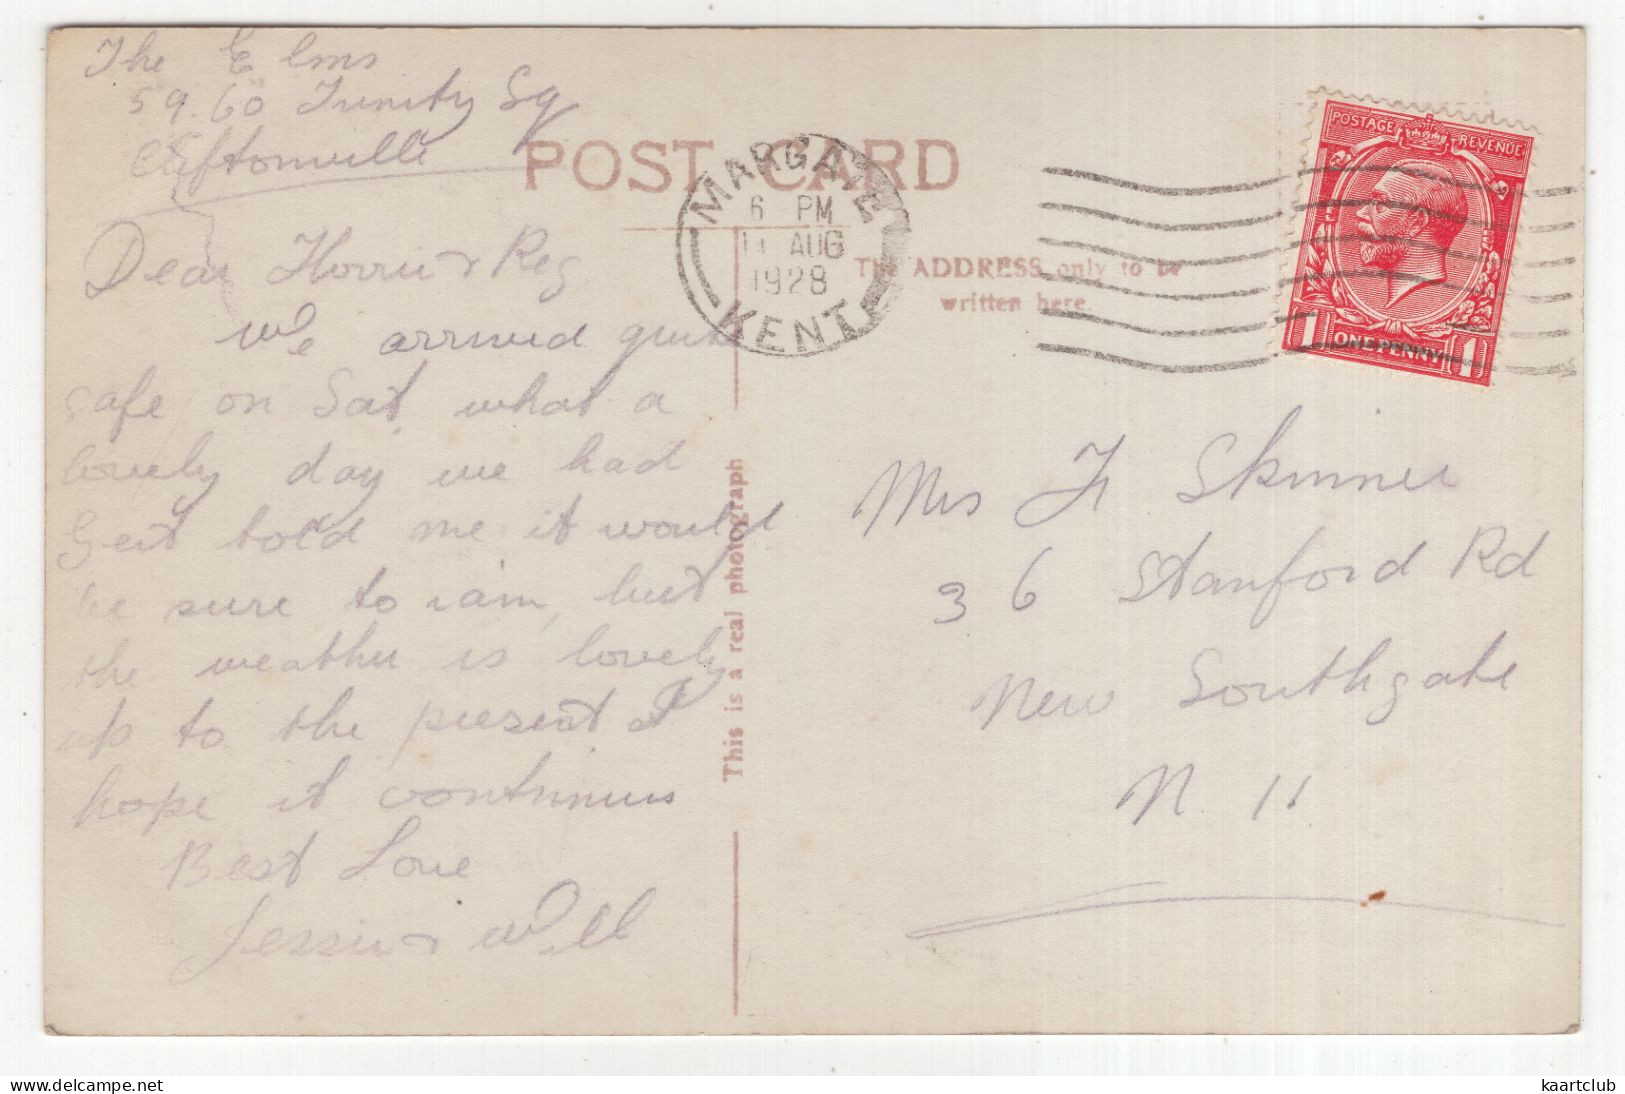 The Elms
59.60 Trinity Sq
Cliftonville
Dear Florrie & Reg
We arrived quite
safe on Sat. what a
lovely day we had
Gert told me it would
be sure to rain, but
the weather is lovely
up to the present I
hope it continues
Best Love
Jessie & Will
POST CARD
MARGATE
6 PM
AUG
1928
KENT
The ADDRESS only to be
written here.
POSTAGE REVENUE
1 ONE PENNY 1
This is a real photograph
Mrs F Skinner
36 Stanford Rd
New Southgate
N. 11
delcampe.net
kaartclub